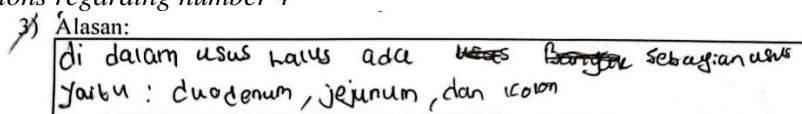 ons regarding number 4
3) Alasan:
di dalam usus halus ada sebagian usus
yaitu : duodenum, jejunum, dan colon